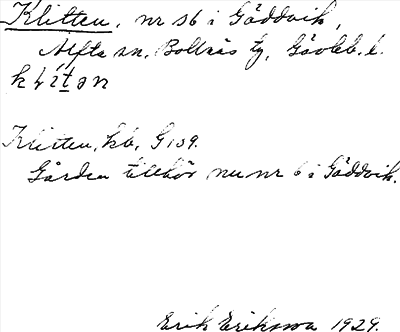 Klitten, nr 36 i Gäddvik,
Alfta sn, Bollnäs tg, Gävleb. l.
Klitten, kb, G 109.
Gården tillhör nu nr 6 i Gäddvik.
Erik Eriksson 1929.